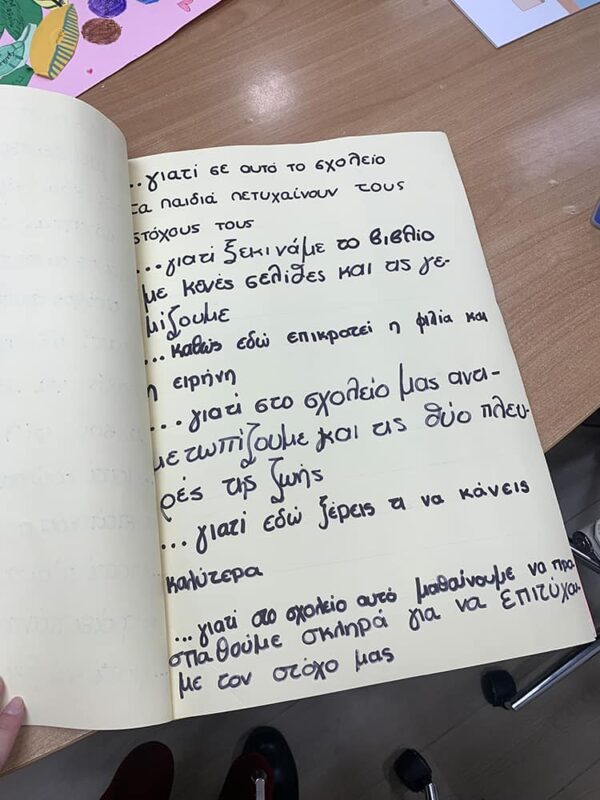 ...γιατί σε αυτό το σχολείο
τα παιδιά πετυχαίνουν τους
στόχους τους
...γιατί ξεκινάμε το βιβλίο
με κενές σελίδες και τις γε-
μίζουμε
...καθώς εδώ επικρατεί η φιλία και
η ειρήνη
...γιατί στο σχολείο μας αντι-
μετωπίζουμε και τις δύο πλευ-
ρές της ζωής
...γιατί εδώ ξέρεις τι να κάνεις
καλύτερα
...γιατί στο σχολείο αυτό μαθαίνουμε να προ
σπαθούμε σκληρά για να επιτύχου
με τον στόχο μας